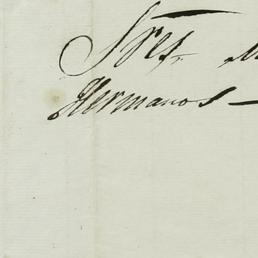 Sres
Hermanos —